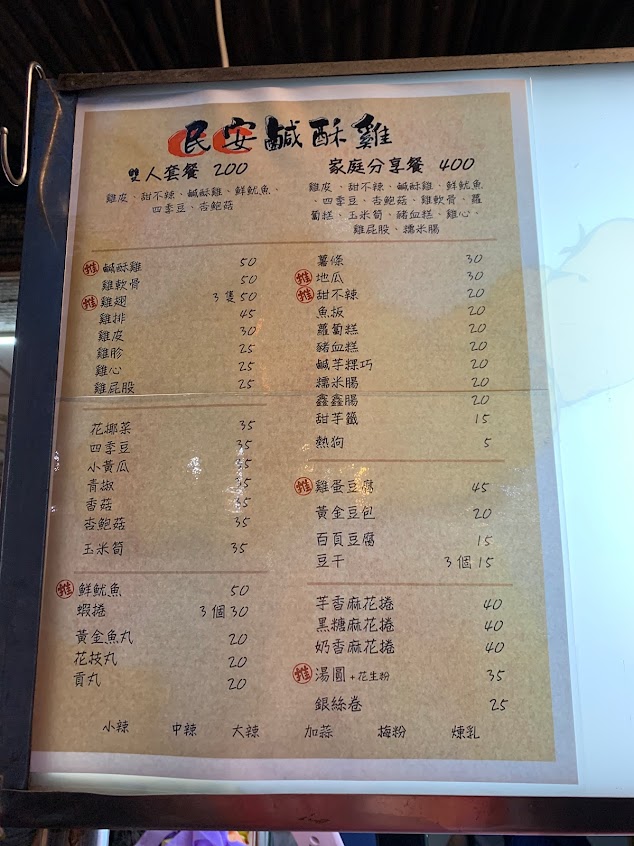 民安鹹酥雞
雙人套餐 200
雞皮、甜不辣、鹹酥雞、鮮魷魚、
四季豆、杏鮑菇
家庭分享餐 400
雞皮、甜不辣、鹹酥雞、鮮魷魚
、四季豆、杏鮑菇、雞軟骨、蘿
蔔糕、玉米筍、豬血糕、雞心、
雞屁股、糯米腸
推 鹹酥雞 50
雞軟骨 50
推 雞翅 3隻50
雞排 45
雞皮 30
雞胗 25
雞心 25
雞屁股 25
花椰菜 35
四季豆 35
小黃瓜 35
青椒 35
香菇 35
杏鮑菇 35
玉米筍 35
推 鮮魷魚 50
蝦捲 3個30
黃金魚丸 20
花枝丸 20
貢丸 20
薯條 30
推 地瓜 30
推 甜不辣 20
魚板 20
蘿蔔糕 20
豬血糕 20
鹹芋粿巧 20
糯米腸 20
鑫鑫腸 20
甜芋籤 15
熱狗 5
推 雞蛋豆腐 45
黃金豆包 20
百頁豆腐 15
豆干 3個15
芋香麻花捲 40
黑糖麻花捲 40
奶香麻花捲 40
推 湯圓+花生粉 35
銀絲卷 25
小辣 中辣 大辣 加蒜 梅粉 煉乳